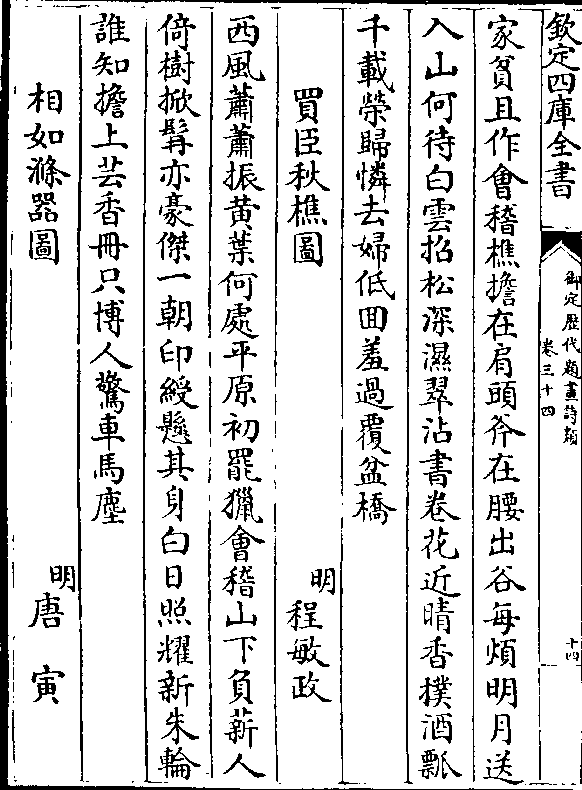 欽定四庫全書
御定歷代題畫詩類
卷三十四
十四
家貧且作會稽樵擔在肩頭斧在腰出谷每煩明月送
入山何待白雲招松深濕翠沾書卷花近晴香撲酒瓢
千載榮歸憐去婦低回羞過覆盆橋
買臣秋樵圖
明程敏政
西風蕭蕭振黄葉何處平原初罷獵會稽山下負薪人
倚樹掀髯亦豪傑一朝印綬懸其身白日照耀新朱輪
誰知擔上芸香冊只博人驚車馬塵
相如滌器圖
明唐寅